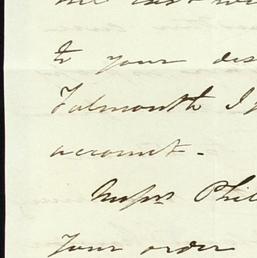 to your des
Falmouth I
account -
Messrs Phil
Your order